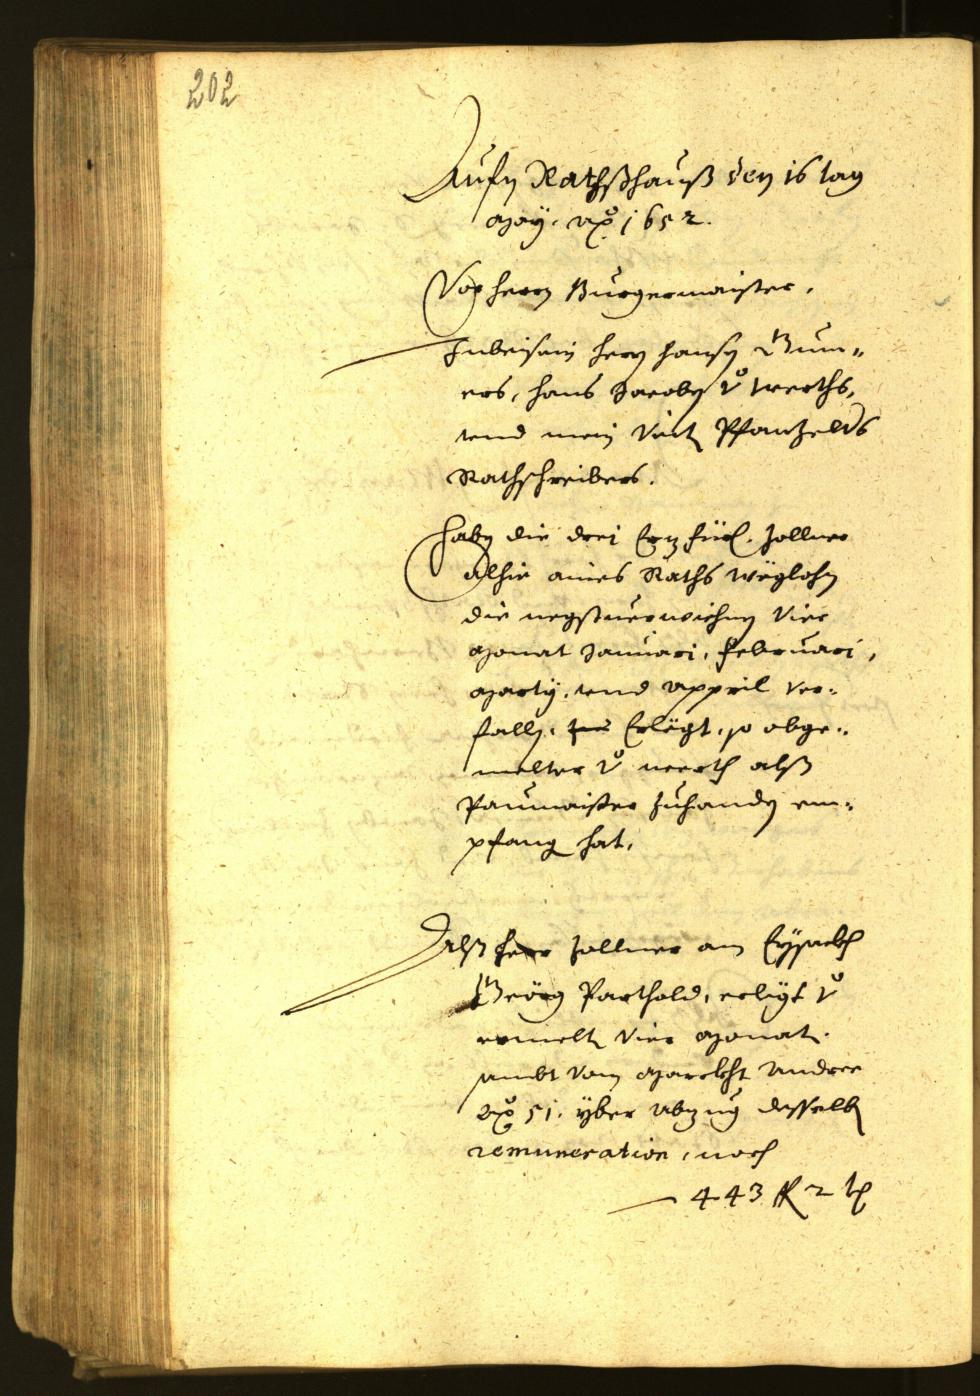 202
Aufn Rathßhauß den 16 tag
May. Ao 1652.
Vor herrn Burgermaister.
Inbeisain herrn Hansen Gum-
ers, Hans Jacoben v. Werths,
unnd mein Veit Pfantzelts
Rathschreibers.
Haben die drei Erzfürl. Zollner
alhie aines Raths Weglohn
die negstverwichnen Vier
Monat Januari, Februari,
Marty, unnd Appril ver-
fallen, Erlegt, so obge-
melter v. Werth alß
Paumaister zuhanden em-
pfang hat.
Alß herr Zollner am Eysackh
Geörg Parthold, erligt v.
ermelten Vier Monat.
sambt vom Marckht Andree
Ao 51. yber abzug desselben
remuneration, noch
443 f 2 k